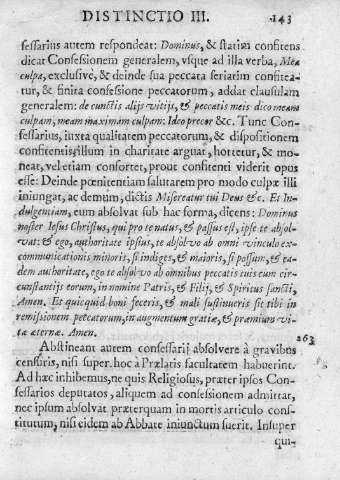 DISTINCTIO III. 143
fessarius autem respondeat: Dominus, & statim confitens
dicat Confessionem generalem, vsque ad illa verba, Mea
culpa, exclusivè, & deinde sua peccata seriatim confitea-
tur, & finita confessione peccatorum, addat clausulam
generalem: de cunctis alijs vitijs, & peccatis meis dico meam
culpam, meam maximam culpam: Ideo precor &c. Tunc Con-
fessarius, iuxta qualitatem peccatorum, & dispositionem
confitentis, illum in charitate arguat, hortetur, & mo-
neat, vel etiam confortet, prout confitenti viderit opus
esse: Deinde pœnitentiam salutarem pro modo culpæ illi
iniungat, ac demum, dictis Misereatur tui Deus &c. Et In-
dulgentiam, eum absolvat sub hac forma, dicens: Dominus
noster Iesus Christus, qui pro te natus, & passus est, ipse te absol-
vat: & ego, authoritate ipsius, te absolvo ab omni vinculo ex-
communicationis minoris, si indiges, & maioris, si possum, & ea-
dem authoritate, ego te absolvo ab omnibus peccatis tuis cum cir-
cunstantijs eorum, in nomine Patris, & Filij, & Spiritus sancti,
Amen. Et quicquid boni feceris, & mali sustinueris sit tibi in
remissionem peccatorum, in augmentum gratiæ, & præmium vi-
tæ æternæ. Amen.
263
Abstineant autem confessarij absolvere à gravibus
censuris, nisi super hoc à Prælatis facultatem habuerint.
Ad hæc inhibemus, ne quis Religiosus, præter ipsos Con-
fessarios deputatos, aliquem ad confessionem admittat,
nec ipsum absolvat præterquam in mortis articulo cons-
titutum, nisi eidem ab Abbate iniunctum fuerit. Insuper
qui-